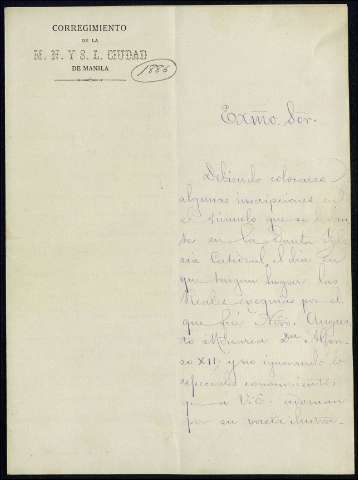 CORREGIMIENTO
DE LA
M. N. Y S. L. CIUDAD
DE MANILA
1886
Exmo Sor.
Debiendo colocarse
algunas inscripciones en
el túmulo que se
en la Santa Igle
sia Catedral, el dia en
que tengan lugar las
Reales exequias por el
que fué Ntro. Augus
to Monarca Don Alfon
so XII; y no ignorando
especiales conocimientos
que á V.E. adornan
por su vasta